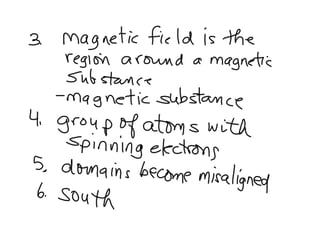 3. magnetic field is the
region around a magnetic
substance
-magnetic substance
4. group of atoms with
spinning electrons
5. domains become misaligned
6. south